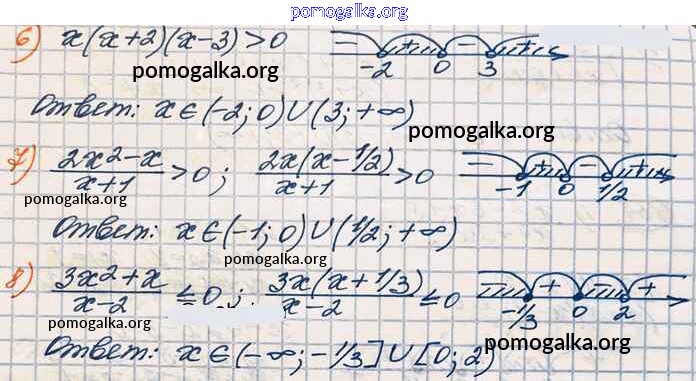 pomogalka.org
6) x(x+2)(x-3)>0 − + − + -2 0 3
pomogalka.org
Ответ: x∈(-2; 0)∪(3; +∞)
pomogalka.org
7) (2x²-x)/(x+1)>0; 2x(x-1/2)/(x+1)>0 − + − + -1 0 1/2
pomogalka.org
Ответ: x∈(-1; 0)∪(1/2; +∞)
pomogalka.org
8) (3x²+x)/(x-2)≤0; 3x(x+1/3)/(x-2)≤0 − + − + -1/3 0 2
pomogalka.org
pomogalka.org
Ответ: x∈(-∞; -1/3]∪[0; 2)